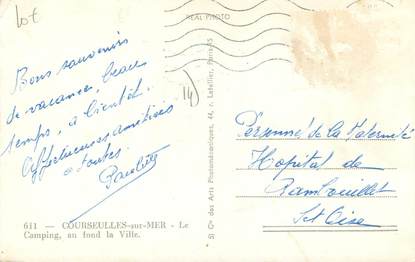 Lot
REAL PHOTO
Bons souvenirs
de vacances, beau
temps, à bientôt.
Affectueuses amitiés
à toutes.
14)
611 — COURSEULLES-sur-MER - Le
Camping, au fond la Ville.
Sté Gle des Arts Photomécaniques, 44, r. Letellier, Paris-15
de la Maternité
Hopital de
Rambouillet
Set Oise